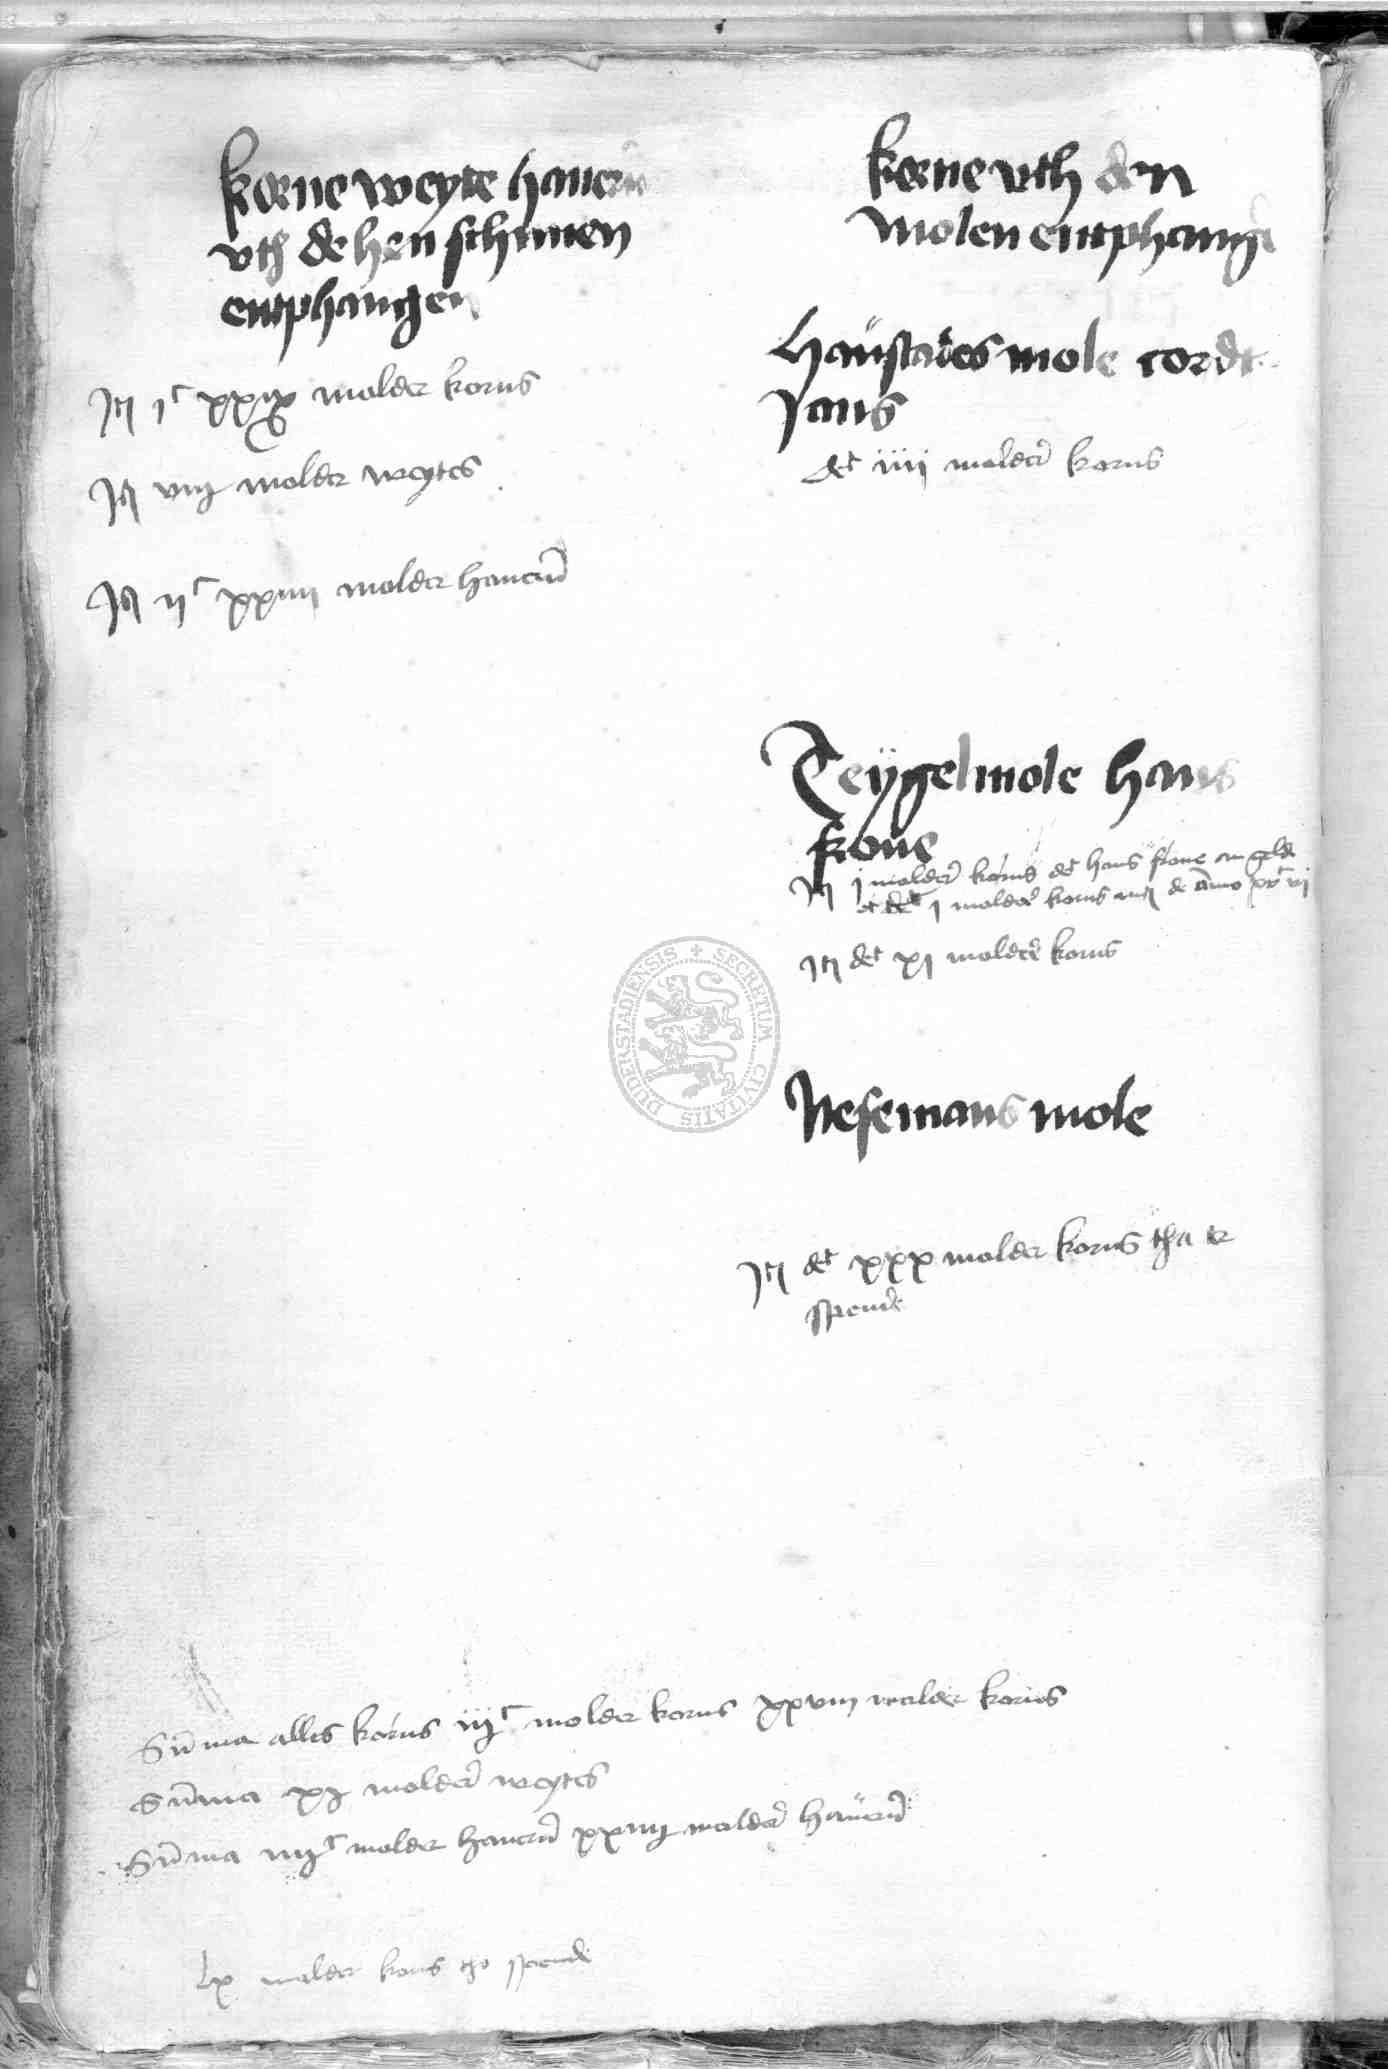 korne weyte haueren
vth de hen schunen
entphangen
Jtem jᶜ xxix molder korns
Jtem viij molder weytes
Jtem ijᶜ xxiiij molder hauern
korne vth den
molen entphangen
Haustades mole cordt
Jans
dt iiij molder korns
Teygelmole hans
kone
Jtem j molder korns dt hans kone an gelde
et dt j molder korns de anno
Jtem dt xj molder korns
Nesemans mole
Jtem dt xxx molder korns tha er
spende
Summa alles korns iijᶜ molder korns xxviij molder korns
Summa xj molder weytes
Summa iiijᶜ molder hauern xxiiij molder hauern
lx molder korns tho spende
SECRETUM CIVITATIS DUDERSTADIENSIS